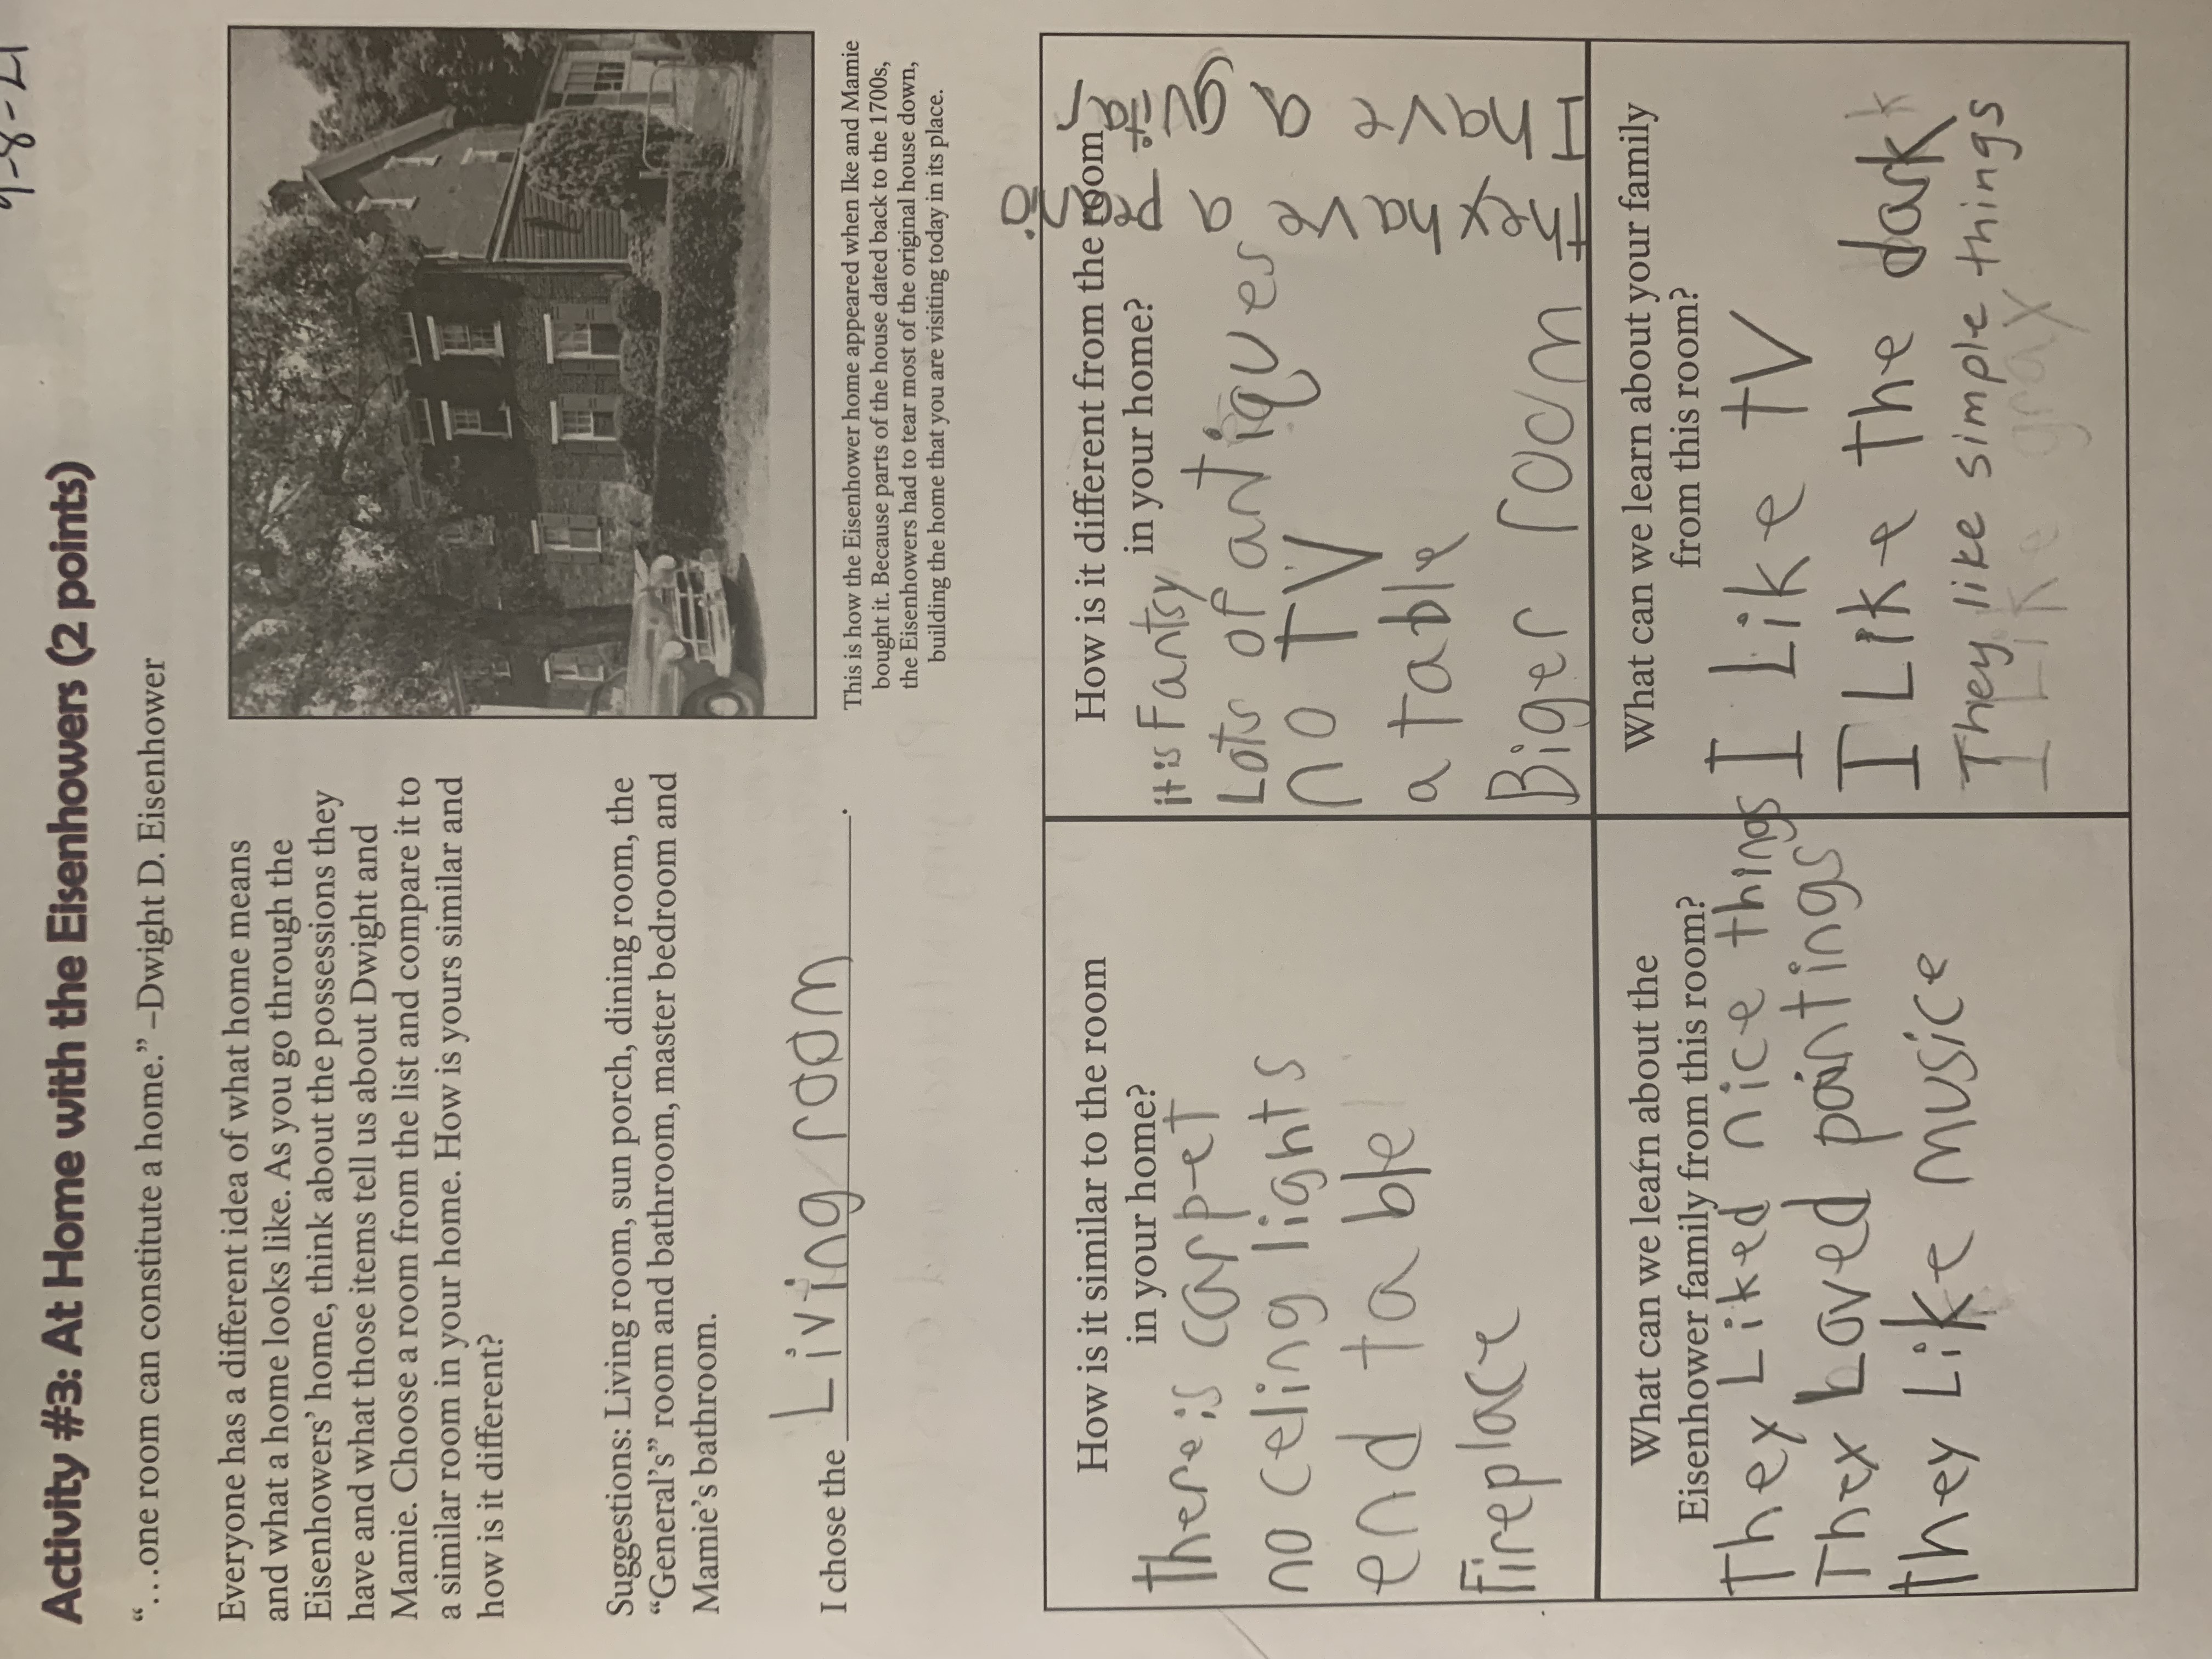 9-8-21
Activity #3: At Home with the Eisenhowers (2 points)
“…one room can constitute a home.” –Dwight D. Eisenhower
Everyone has a different idea of what home means
and what a home looks like. As you go through the
Eisenhowers’ home, think about the possessions they
have and what those items tell us about Dwight and
Mamie. Choose a room from the list and compare it to
a similar room in your home. How is yours similar and
how is it different?
Suggestions: Living room, sun porch, dining room, the
“General’s” room and bathroom, master bedroom and
Mamie’s bathroom.
I chose the Living room.
This is how the Eisenhower home appeared when Ike and Mamie
bought it. Because parts of the house dated back to the 1700s,
the Eisenhowers had to tear most of the original house down,
building the home that you are visiting today in its place.
How is it similar to the room
in your home?
There is carppet
no celing lights
end table
Fireplace
How is it different from the room
in your home?
it is Fantsy
Lots of antiques
no TV
a table
Biger room
they have a peano
I have a guitar
What can we learn about the
Eisenhower family from this room?
They Liked nice things
They Loved paintings
They Like music
What can we learn about your family
from this room?
I Like TV
I Like the dark
They like simple things
I Like gray